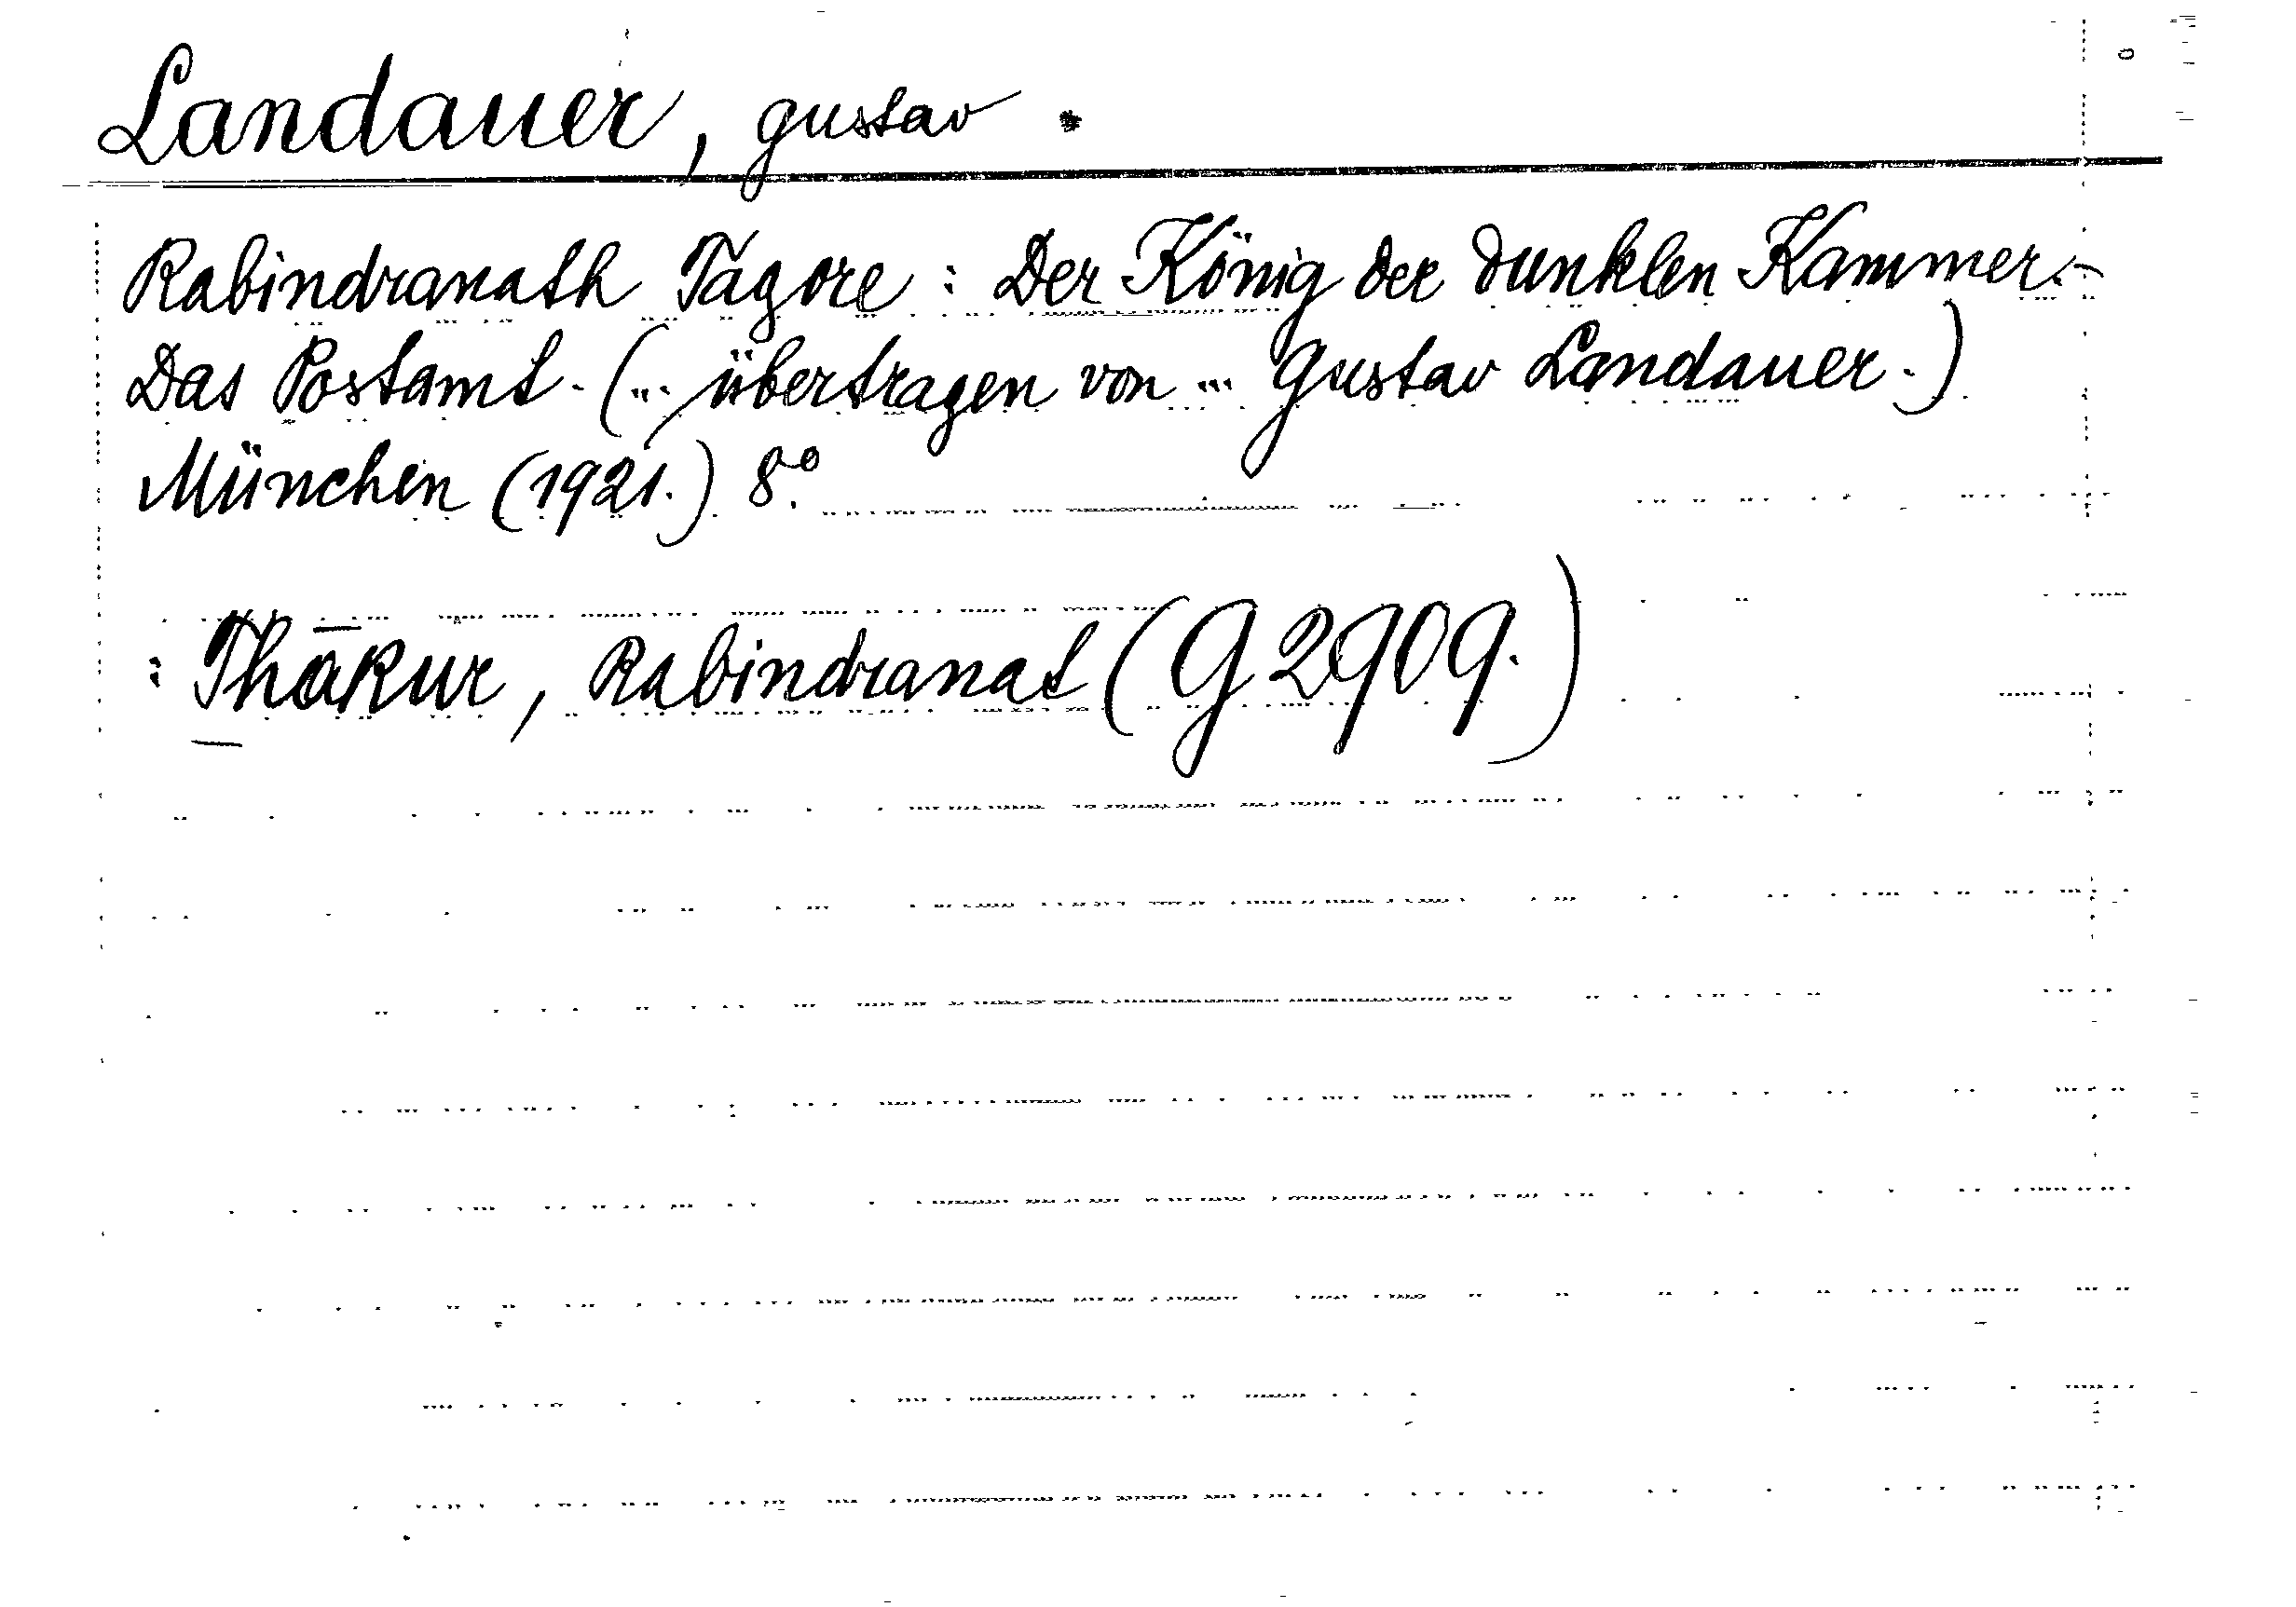 Landauer, Gustav.
Rabindranath Tagore: Der König der dunklen Kammer.-
Das Postamt. (... übertragen von ... Gustav Landauer.)
München (1921.) 8°.
: Ṯhākur, Rabindranat (G 2909.)